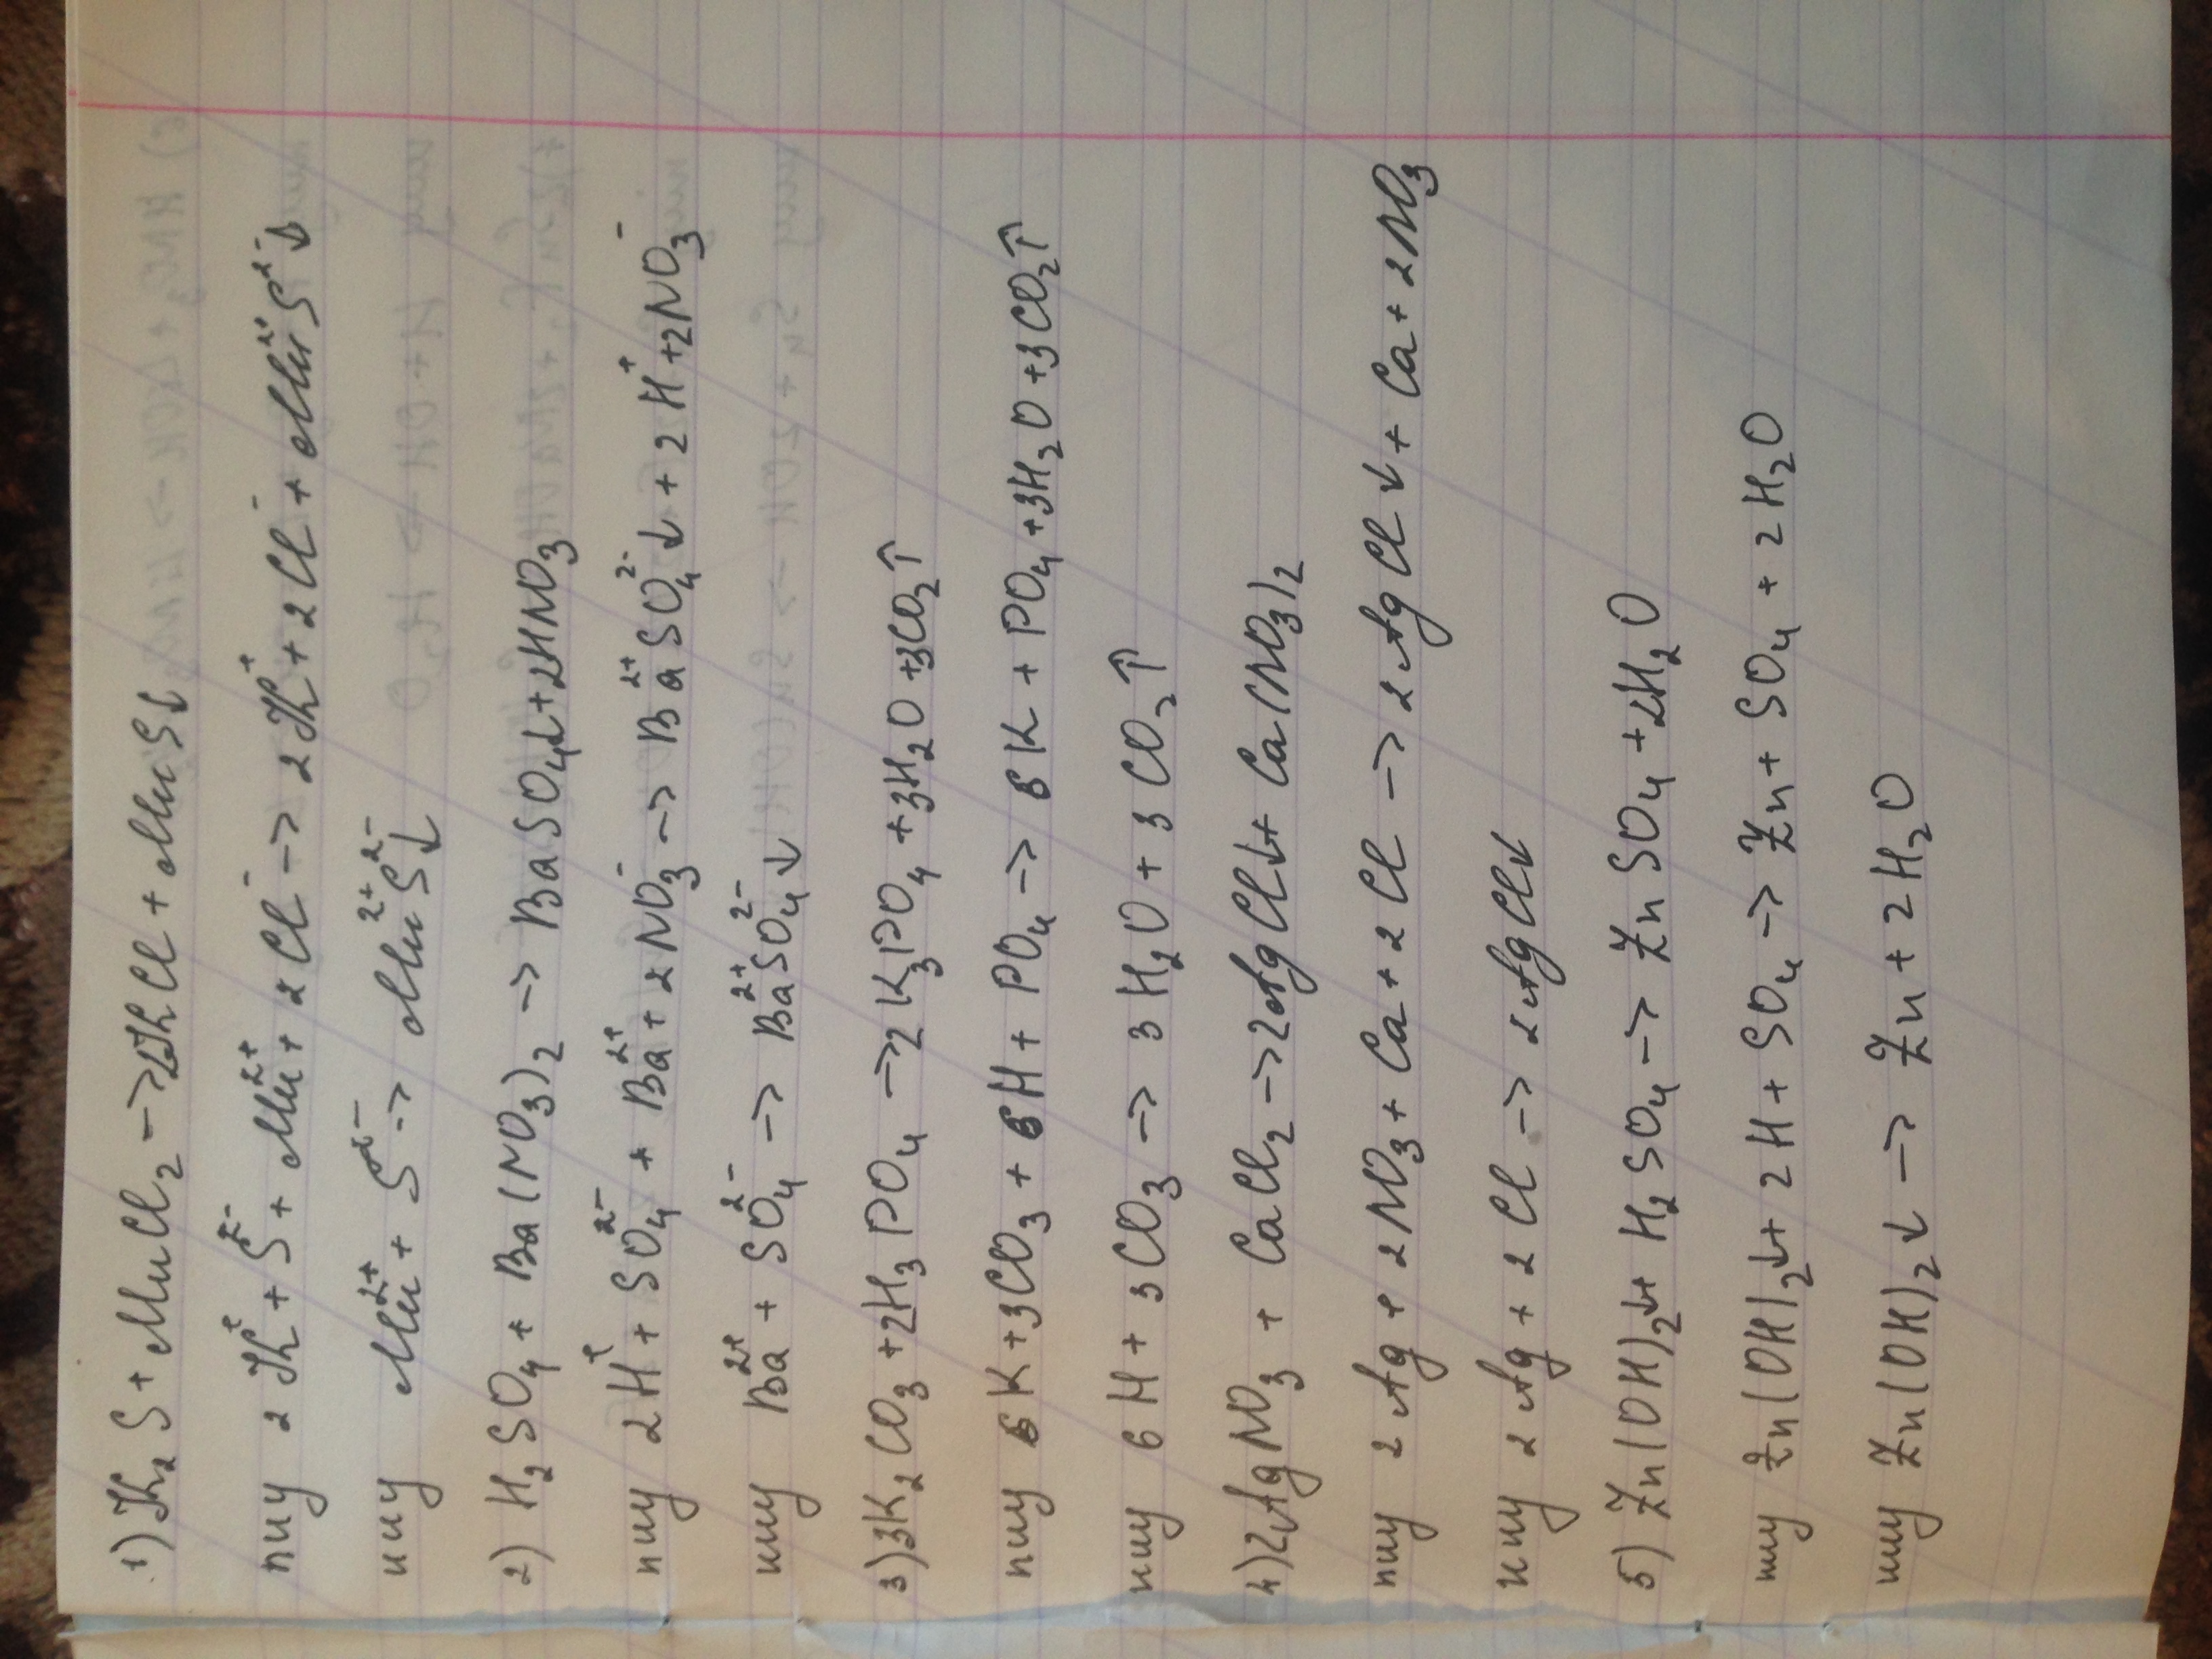 1) Th₂ S + MnCl₂ -> 2ThCl + MnS↓
пиу 2 Th⁺ + S²⁻ + Mn²⁺ + 2 Cl⁻ -> 2 Th⁺ + 2 Cl⁻ + Mn²⁺S²⁻↓
ииу Mn²⁺ + S²⁻ -> Mn²⁺S²⁻↓
2) H₂SO₄ + Ba(NO₃)₂ -> BaSO₄↓ + 2HNO₃
пиу 2H⁺ + SO₄²⁻ + Ba²⁺ + 2NO₃⁻ -> Ba²⁺SO₄²⁻↓ + 2H⁺ + 2NO₃⁻
ииу Ba²⁺ + SO₄²⁻ -> Ba²⁺SO₄²⁻↓
3) 3K₂CO₃ + 2H₃PO₄ -> 2K₃PO₄ + 3H₂O + 3CO₂↑
пиу 6K + 3CO₃ + 6H + PO₄ -> 6K + PO₄ + 3H₂O + 3CO₂↑
ииу 6H + 3CO₃ -> 3H₂O + 3CO₂↑
4) 2AgNO₃ + CaCl₂ -> 2AgCl↓ + Ca(NO₃)₂
пиу 2Ag + 2NO₃ + Ca + 2Cl -> 2AgCl↓ + Ca + 2NO₃
ииу 2Ag + 2Cl -> 2AgCl↓
5) Zn(OH)₂↓ + H₂SO₄ -> ZnSO₄ + 2H₂O
пиу Zn(OH)₂↓ + 2H + SO₄ -> Zn + SO₄ + 2H₂O
ииу Zn(OH)₂↓ -> Zn + 2H₂O